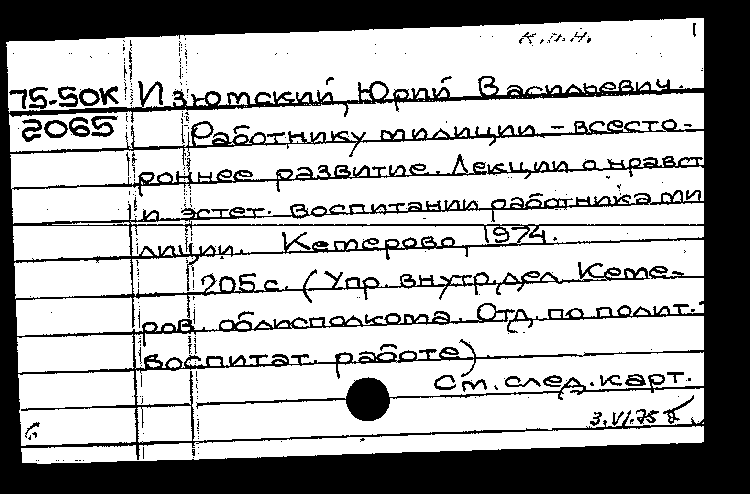 К.п.н. 1
75-50К Изютский, Юрий Васильевич.
2065 Работнику милиции, - всесто-
роннее развитие. Лекции о нравст
и эстет. воспитании работника ми
лиции. Кемерово, 1974.
205 с. (Упр. внутр. дел Кеме-
ров. облисполкома. Отд. по полит.-
воспитат. работе)
См. след. карт.
3.VI.75